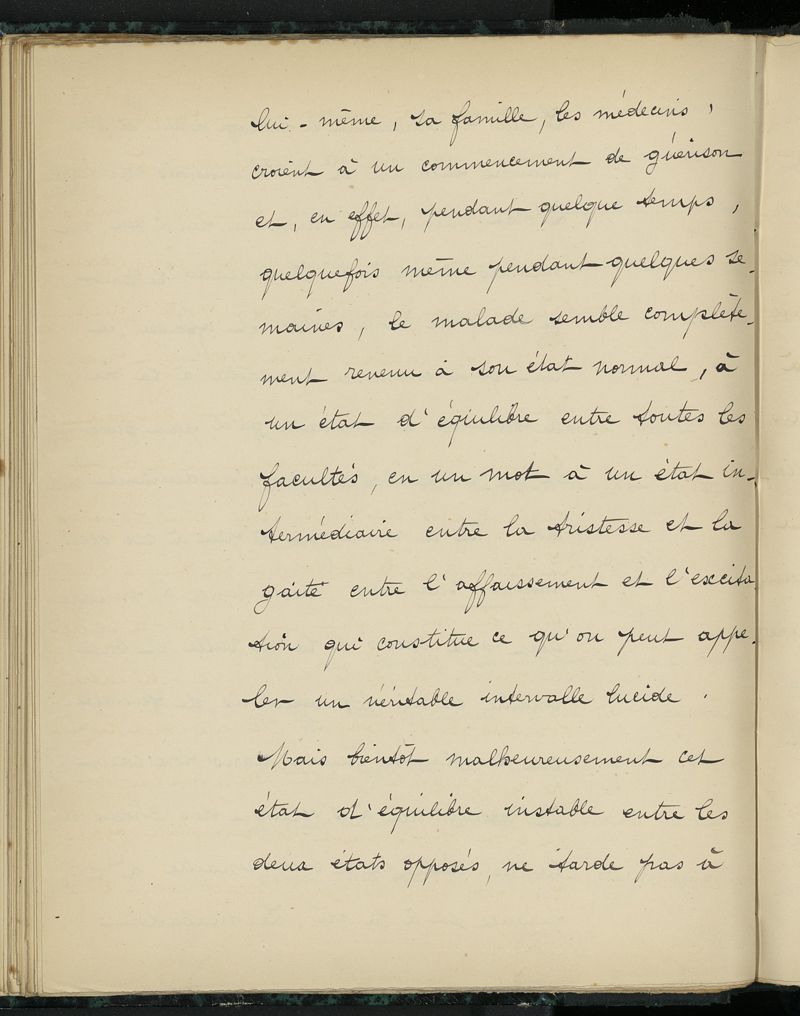 lui-même, sa famille, les médecins,
croient à un commencement de guérison
et, en effet, pendant quelque temps,
quelquefois même pendant quelques se-
maines, le malade semble complète-
ment revenu à son état normal, à
un état d'équilibre entre toutes les
facultés, en un mot à un état in-
termédiaire entre la tristesse et la
gaité entre l'affaissement et l'excita
tion qui constitue ce qu'on peut appe-
ler un véritable intervalle lucide.
Mais bientôt malheureusement cet
état d'équilibre instable entre les
deux états opposés, ne tarde pas à